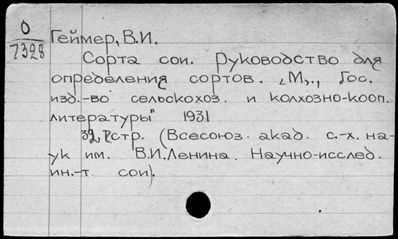 О
7328
Геймер, В.И.
Сорта сои. Руководство для
определения сортов. "М"., Гос.
изд.-во сельскохоз. и колхозно-кооп.
литературы" 1931
стр. (Всесоюз. акад. с.-х. на-
ук им. В.И.Ленина. Научно-исслед.
ин.-т. сои).